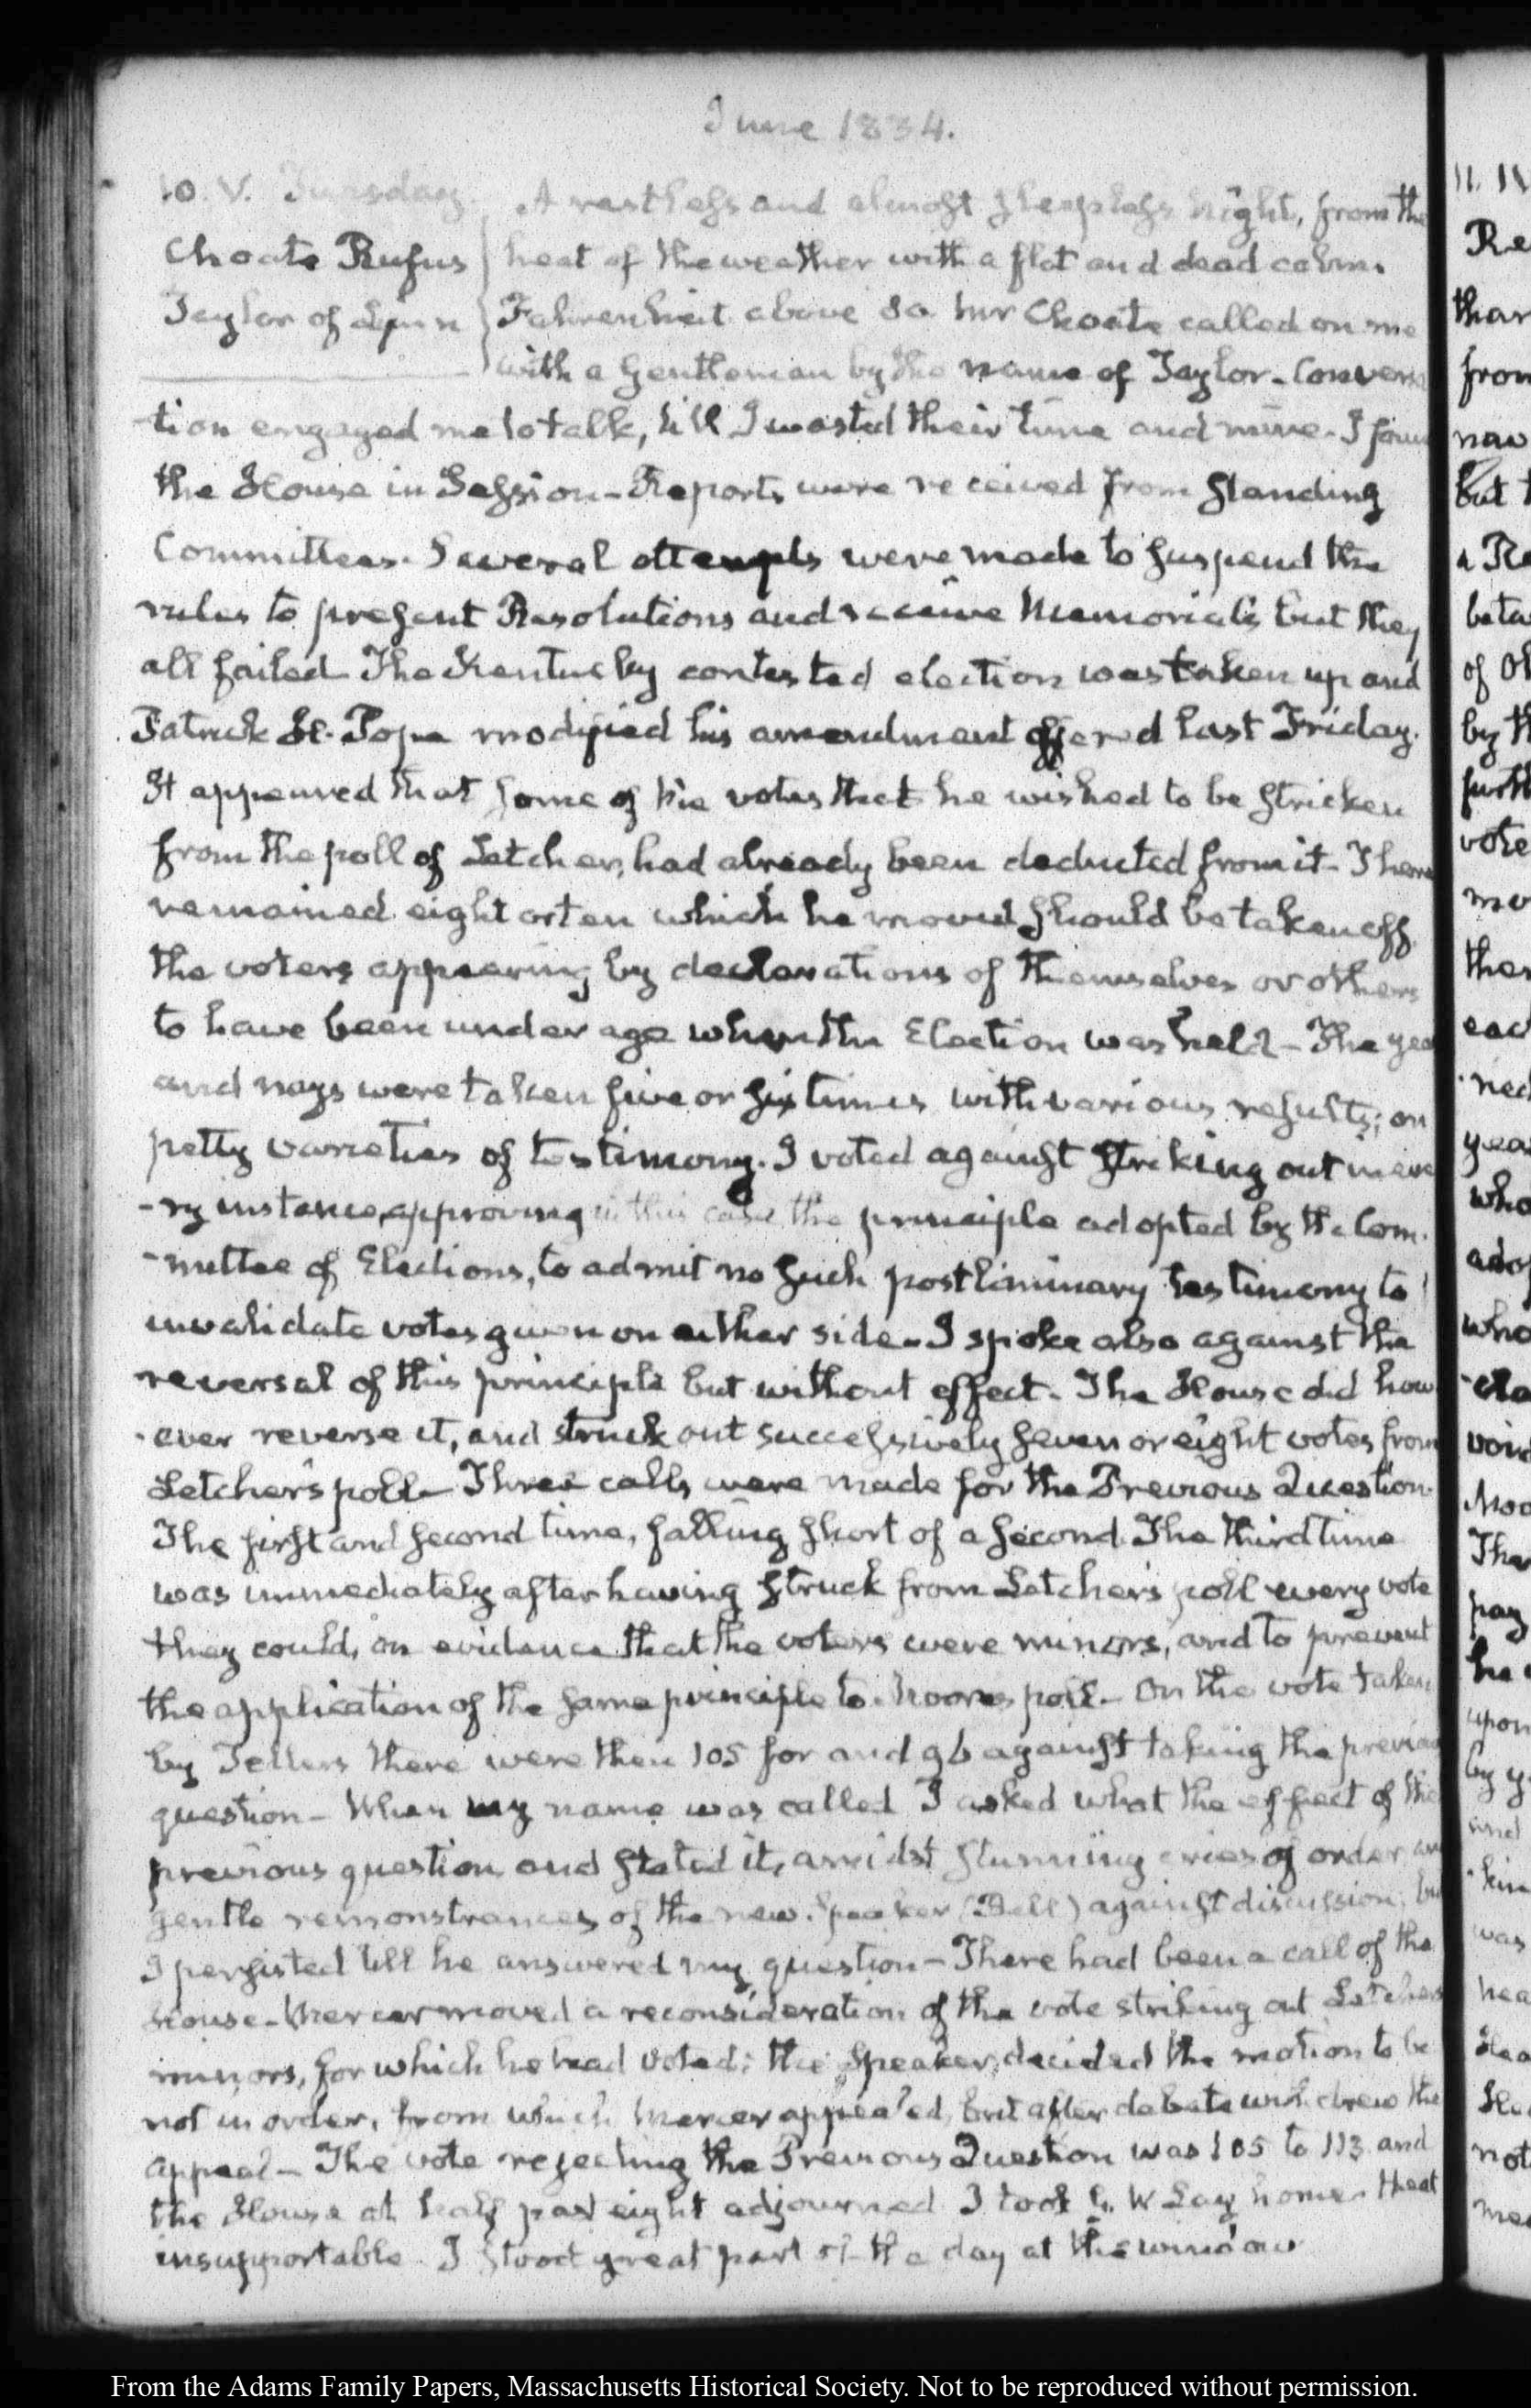 June 1834.
10. V. Tuesday. A restless and almost sleepless night, from the
Choate Rufus heat of the weather with a flat and dead calm.
Taylor of Lynn Fahrenheit above 80. Mr Choate called on me
with a Gentleman by the name of Taylor. Conversa
-tion engaged me to talk, till I wasted their time and mine. I foun
the House in Session — Reports were received from Standing
Committees. Several attempts were made to suspend the
rules to present Resolutions and receive Memorials but they
all failed. The Kentucky contested election was taken up and
Patrick H. Pope modified his amendment offered last Friday.
It appeared that some of the votes that he wished to be stricken
from the poll of Letcher, had already been deducted from it. There
remained eight or ten which he moved should be taken off
the voters appearing by declarations of themselves or others
to have been under age when the Election was held — The yea
and nays were taken five or six times with various results; on
petty varieties of testimony. I voted against striking out in eve
-ry instance, approving in this case the principle adopted by the Com-
-mittee of Elections, to admit no such postliminary testimony to
invalidate votes given on either side — I spoke also against the
reversal of this principle but without effect. The House did how
-ever reverse it, and struck out successively seven or eight votes from
Letcher's poll — Three calls were made for the Previous Question.
The first and second time, falling short of a second. The third time
was immediately after having struck from Letcher's poll every vote
they could, on evidence that the voters were minors, and to prevent
the application of the same principle to Moore's poll — On the vote taken
by Tellers there were then 105 for and 96 against taking the previou
question — When my name was called I asked what the effect of the
previous question and stated it, amidst stunning cries of order an
gentle remonstrances of the new Speaker (Bell) against discussion; bu
I persisted till he answered my question — There had been a call of the
House. Mercer moved a reconsideration of the vote striking out Letchers
minors, for which he had voted; the Speaker decided the motion to be
not in order, from which Mercer appealed, but after debate withdrew the
appeal — The vote rejecting the Previous Question was 105 to 113 and
the House at half past eight adjourned I took G. W Lay home. Heat
insupportable. I stood great part of the day at the window